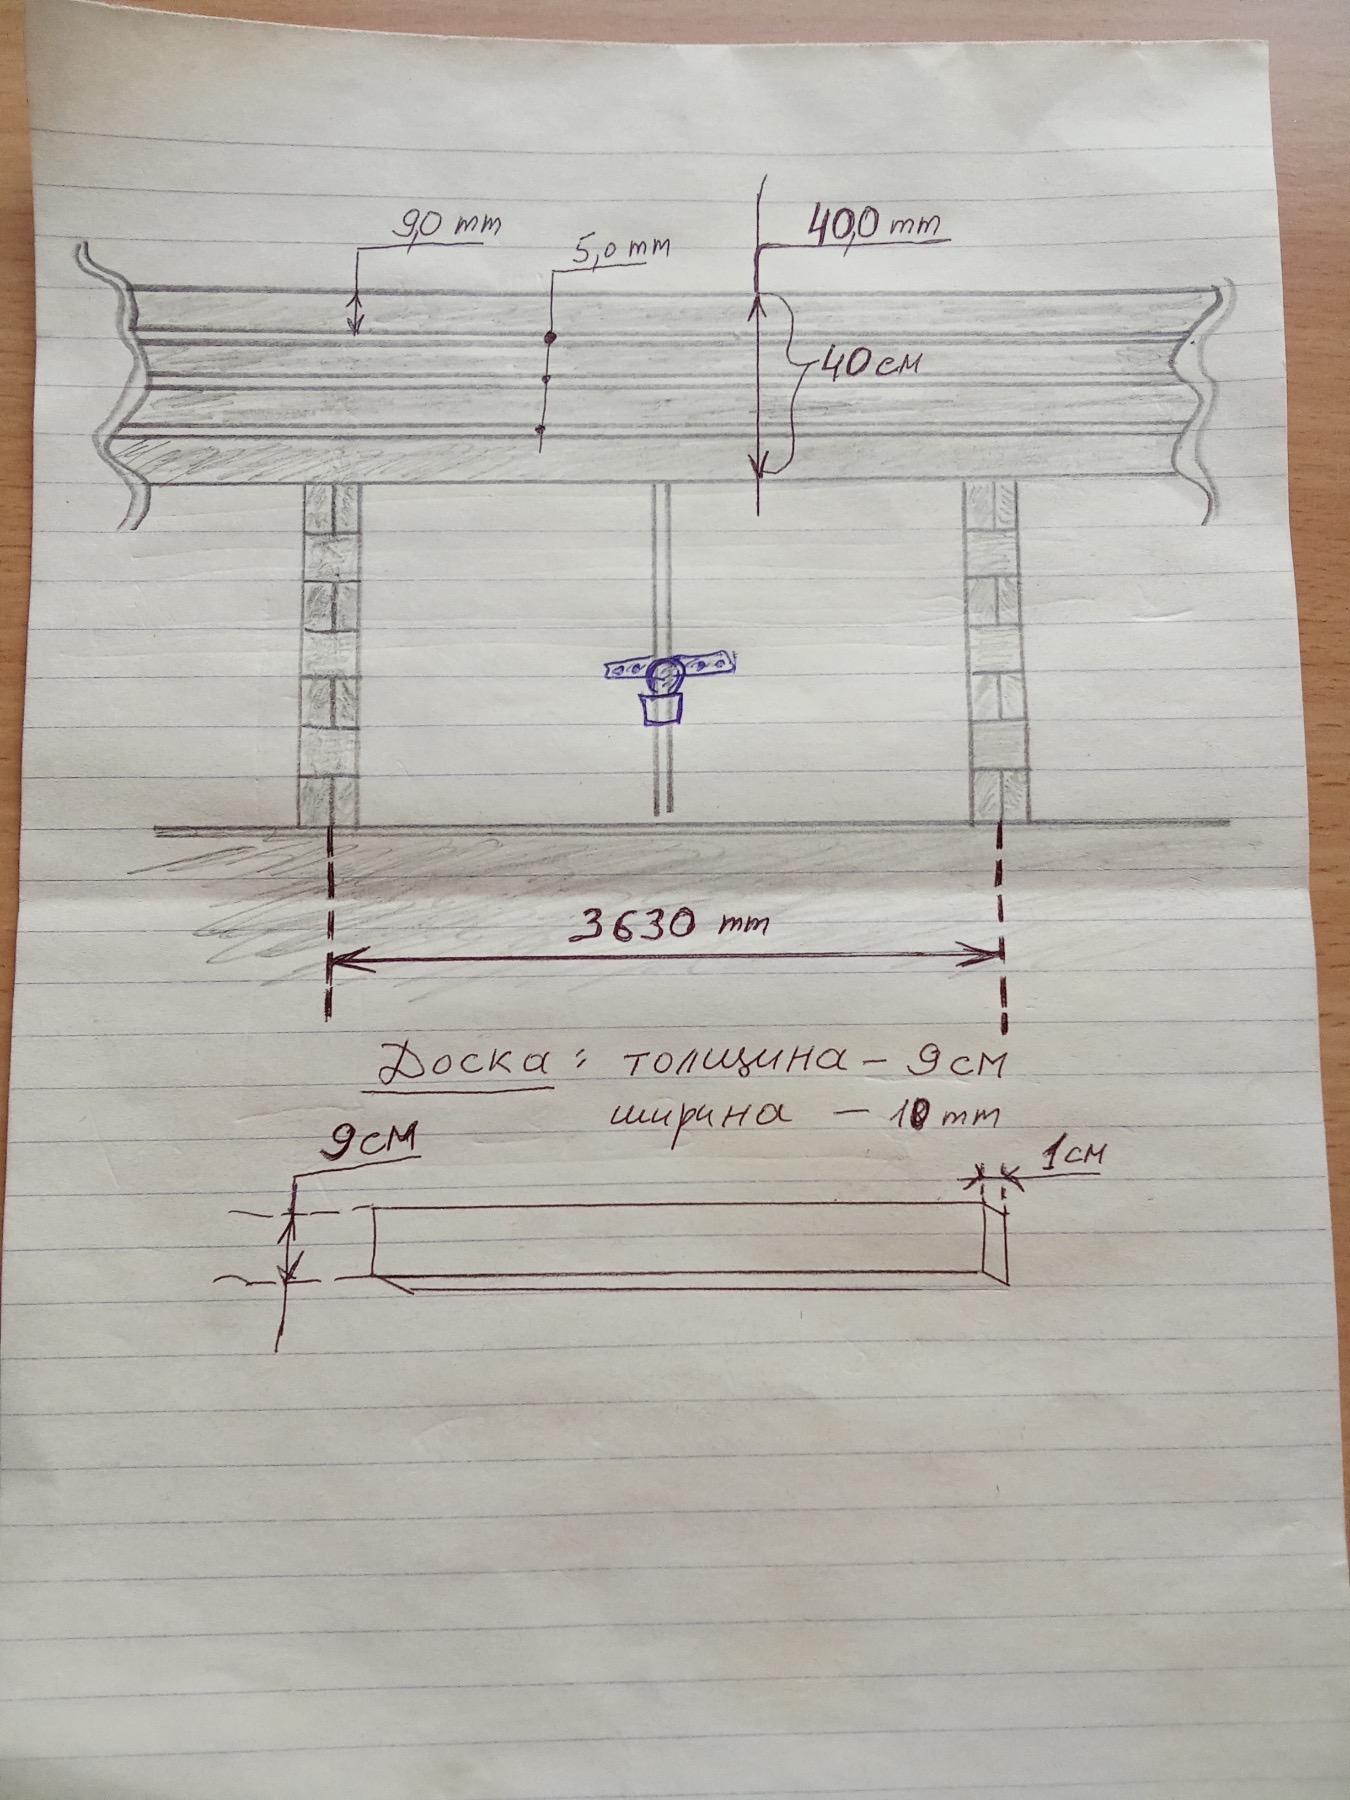 9,0 mm
5,0 mm
40,0 mm
40 см
3630 mm
Доска: толщина – 9 см
ширина – 10 mm
9 см
1 см